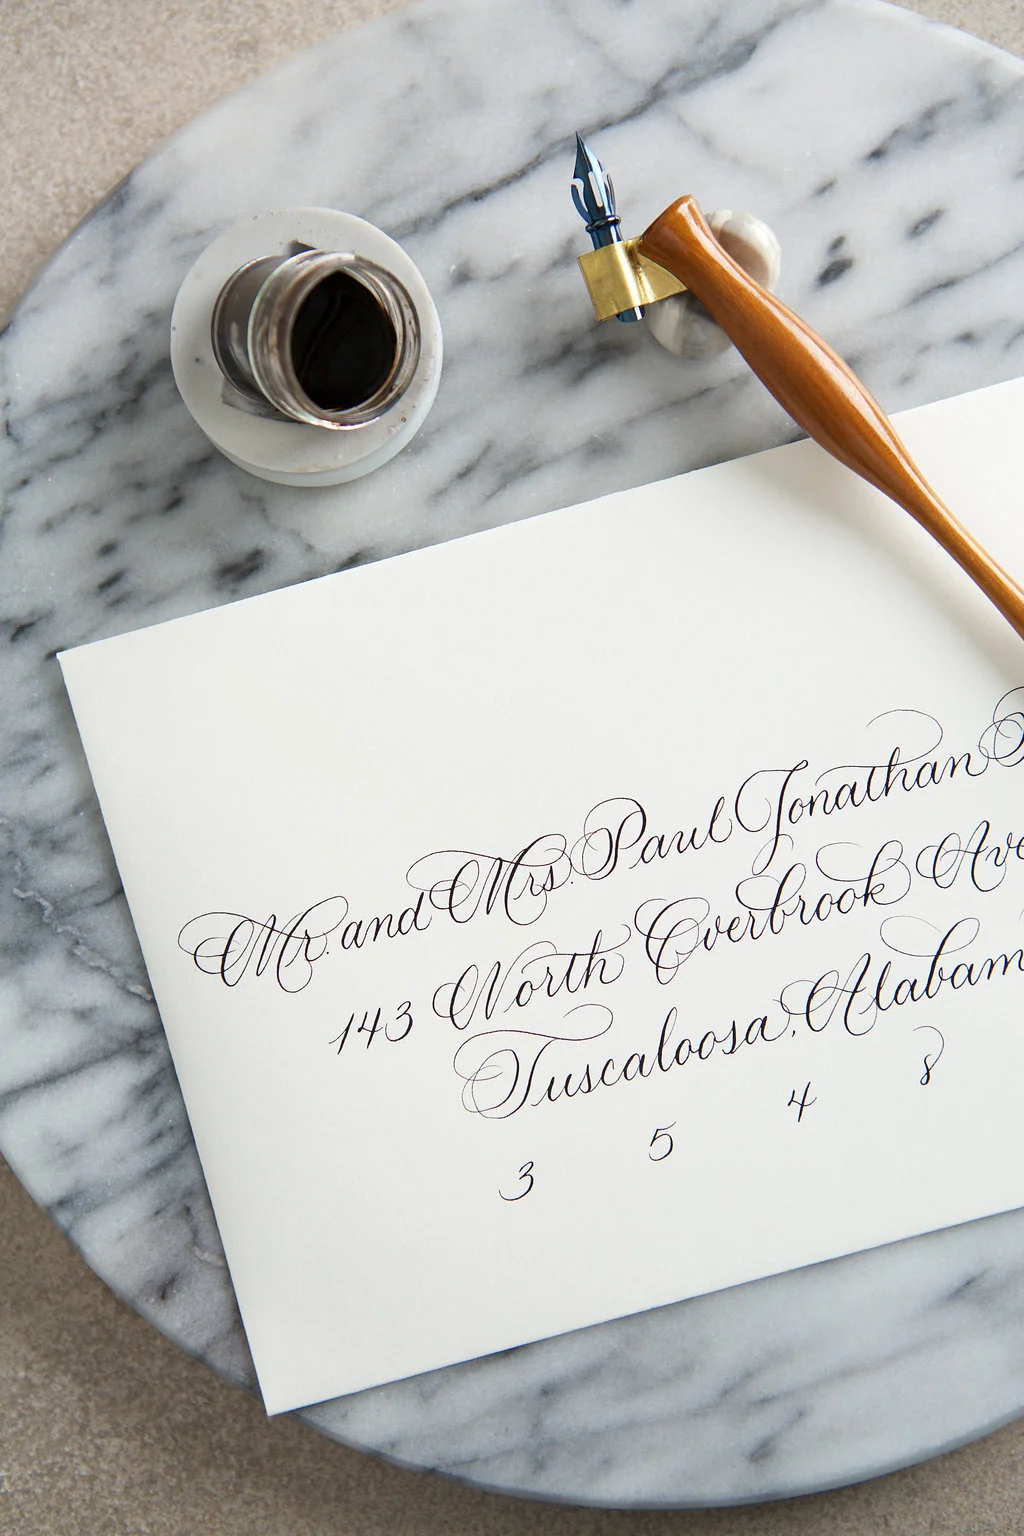 Mr. and Mrs. Paul Jonathan
143 North Overbrook Ave
Tuscaloosa, Alabam
3 5 4 8